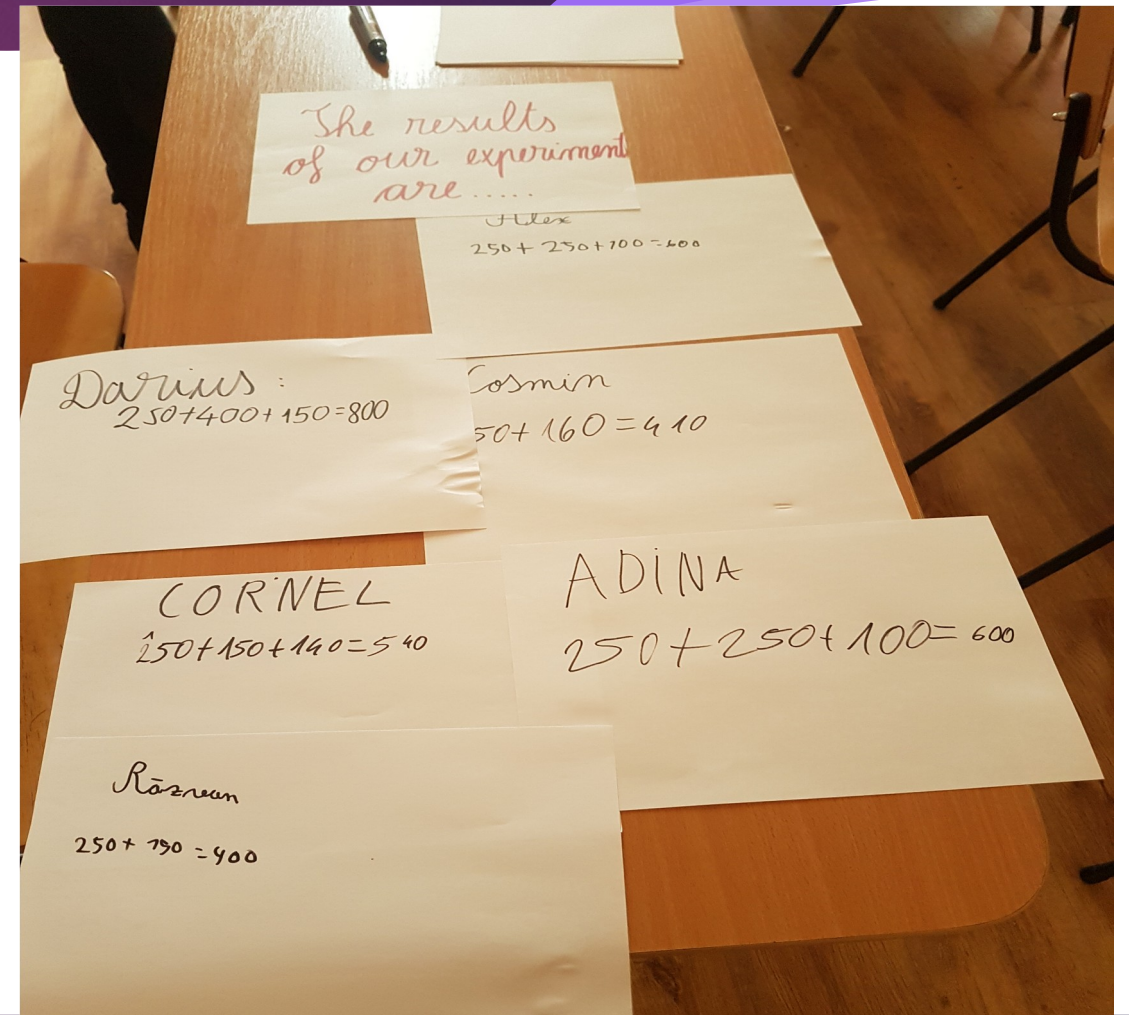 The results
of our experiment
are.....
Alex
250+ 250+100=600
Darius:
250+400+150=800
Cosmin
50+160=410
CORNEL
250+150+140=540
ADINA
250+250+100=600
Răzvan
250+ 150 =400